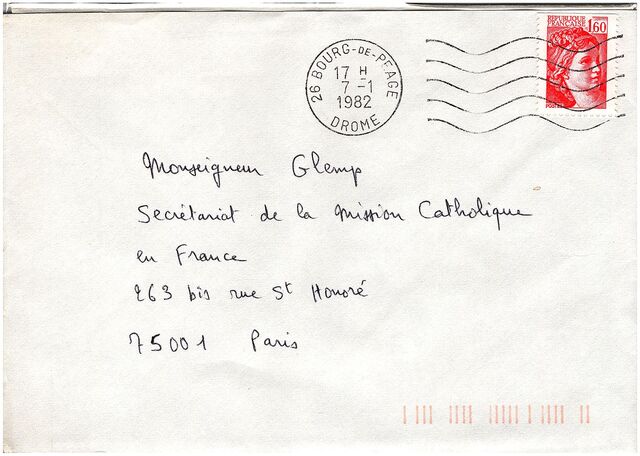 RÉPUBLIQUE
FRANÇAISE 1,60
POSTES
26 BOURG-DE-PEAGE
17 H
7 -1
1982
DROME
Monseigneur Glemp
Secrétariat de la Mission Catholique
en France
263 bis rue St Honoré
75001 Paris